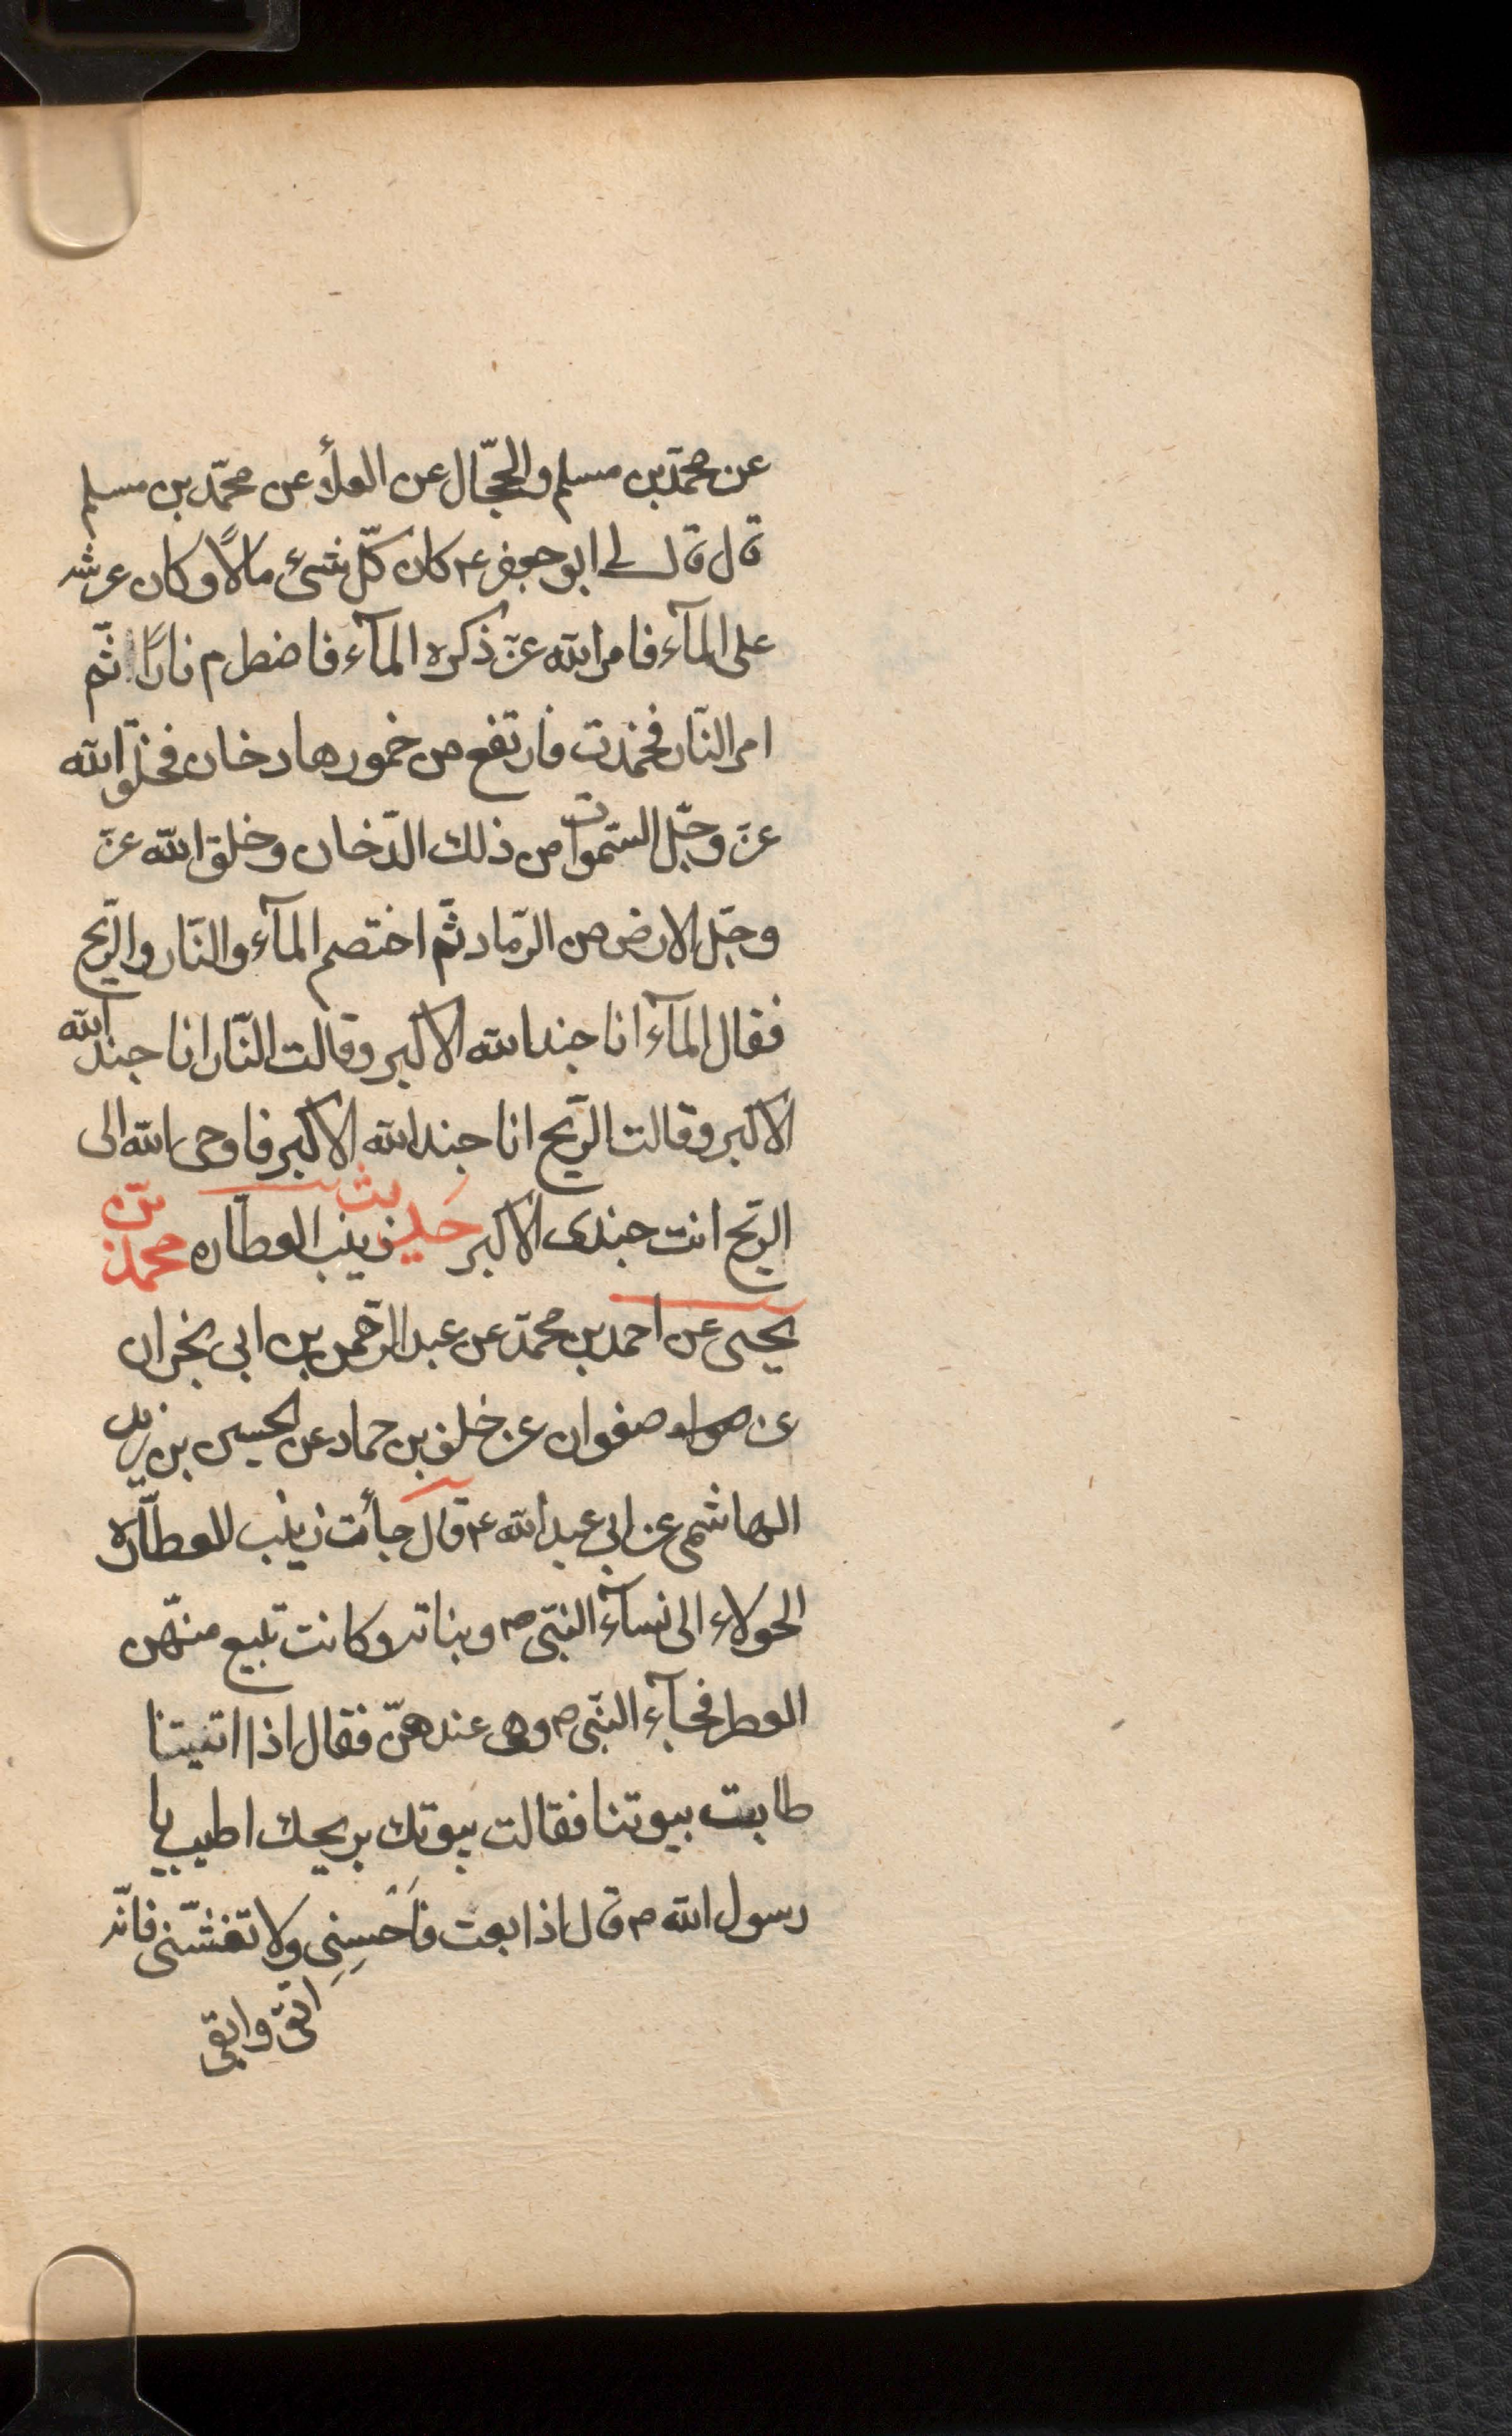 عن محمد بن مسلم والحجّال عن العلأ عن محمّد بن مسلم
قال قال لے ابو جعفر ع كان كلّ شئ مالًا وكان عرشه
على المآء فامر الله عزّ ذكره المآء فاضطرم نارًا ثّم
امر النّار فخمدت فارتفع من خمورها دخان فخلق الله
عزّ وجّل السّموات من ذلك الدّخان وخلق الله عزّ
وجّل الارض من الرّماد ثّم اختصم المآء والنّار والرّيح
فقال المآء انا جند الله الاكبر وقالت النّار انا جند الله
الاكبر وقالت الرّيح انا جند الله الاكبر فاوحى الله الى
الرّيح انت جندى الاكبر حديث زينب العطّاره محمّد بن
يحيى عن احمد بن محمّد عن عبد الرّحمن بن ابى نجران
عن صفوان عن خلف بن حماد عن الحسين بن زيد
الهاشمى عن ابى عبد الله ع قال جأت زينب العطّارة
الحولاء الى نسآء النبّى ص وبناته وكانت تبيع منهّن
العطر فجآء النبّى ص وهى عندهنّ فقال اذا اتيتنا
طابت بيوتنا فقالت بيوتك بريحك اطيب يا
رسول الله ص قال اذا بعت فَاَحْسِنِى ولا تغشّنى فانّه
اتقى وابقى